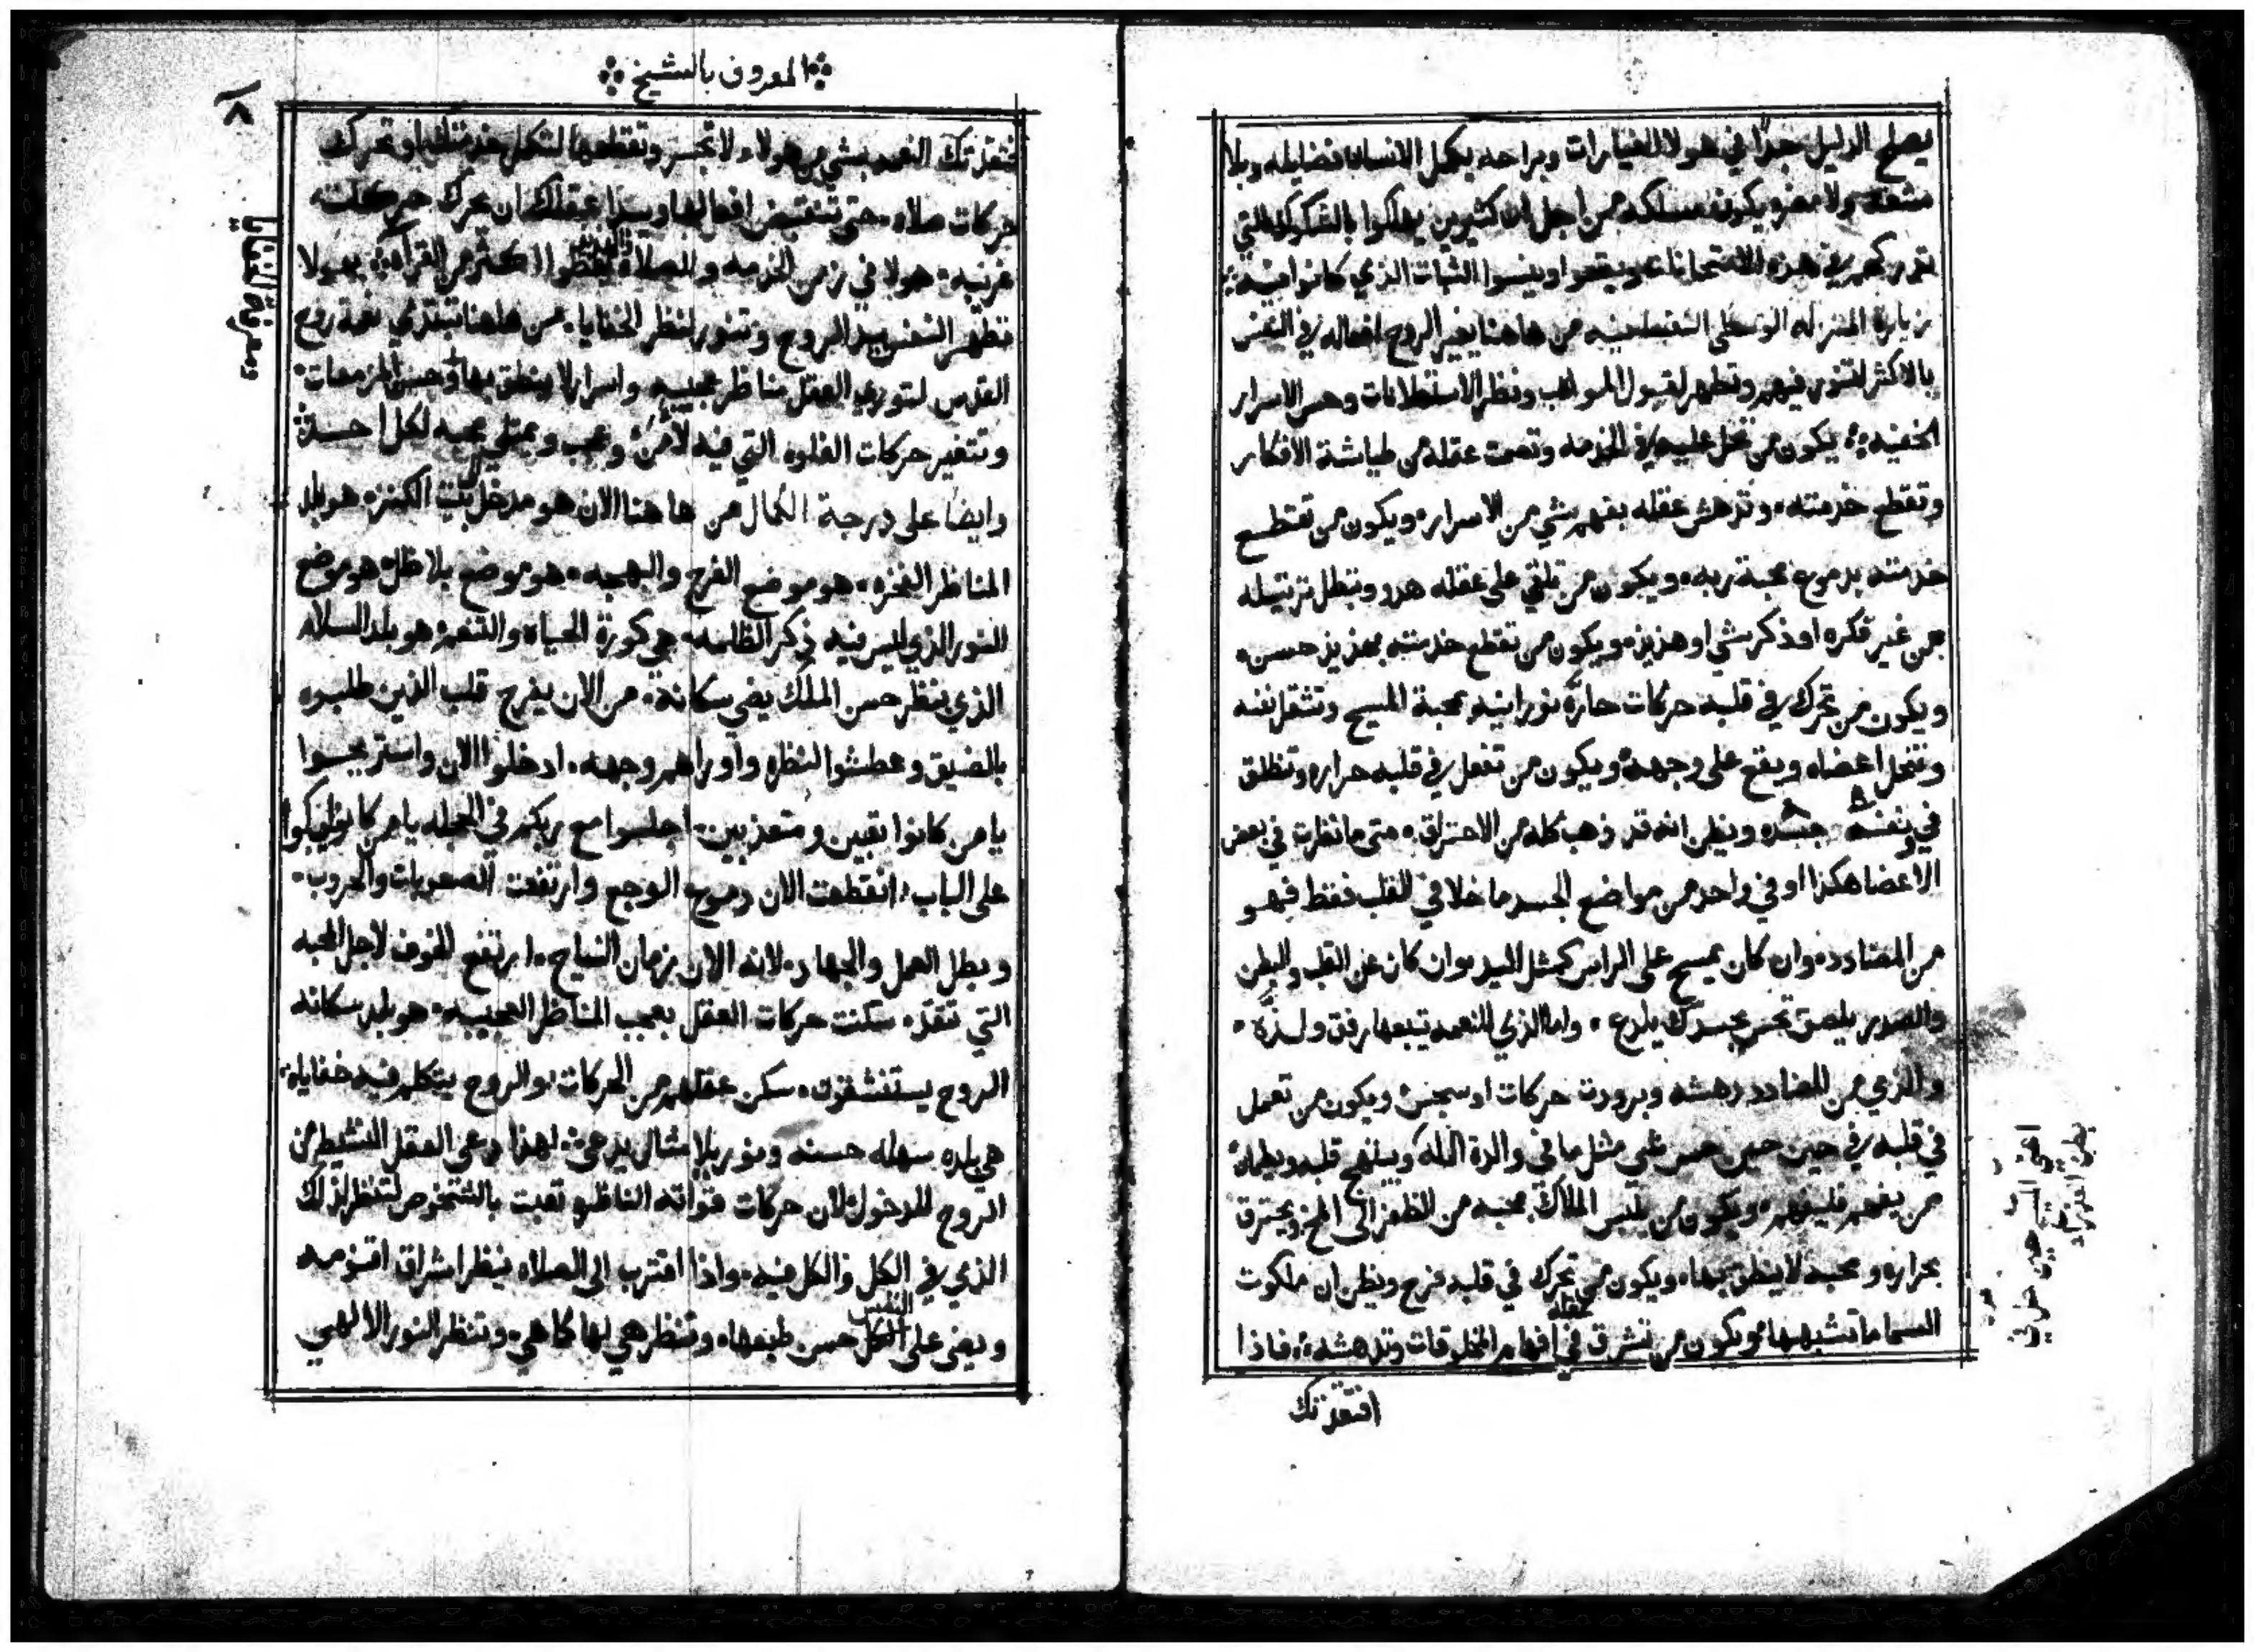 يصلح الدليل جدًا في هولا الغيارات وبراحه يكمل الانسان فضايله وبلا
مشقه ولا مضر ويكون مسلكه من اجل ان كثيرين يهلكوا بالشكوك التي
تدركهم في هذه الامتحانات ويقعوا وينسوا الثبات الذي كانوا فيه
بزياره المنزله الوسطى النفسانيه من هاهنا يغير الروح افعاله في النفس
بالاكثر لتتنور فيهم وتطهر لقبول المواهب ونظر الاستعلانات وحس الاسرار
الخفيه يكون من تحل عليه في الخدمه وتصمت عقله من طياشة الافكار
وتقطع خدمته وتدهش عقله بفهم شي من الاسرار ويكون من تقطع
خدمته بدموع محبة ربه ويكون من تلقي على عقله هدو وتبطل ترتيله
من غير فكره او ذكر شي او هذيذ ويكون من تقطع خدمته بهذيذ حسن
ويكون من تحرك في قلبه حركات حاره نورانيه بمحبة المسيح وتشتعل نفسه
وتنحل اعضاه ويقع على وجهه ويكون من تفعل في قلبه حراره وتنطلق
في نفسه وجسده ويظن انه قد ذهب كله من الاحتراق متى ما نظرت في بعض
الاعضا هكذا او في واحد من مواضع الجسد ما خلا في القلب فقط فهو
من المضادد وان كان يمسح على الراس كمثل اليد وان كان عن القلب والبطن
والصدر يلصق تحس بجسدك يلدع واما الذي للنعمه تتبعها رفق ولذه
والذي من المضادد دهشه وبرودت حركات او سجس ويكون من تعمل
في قلبه في حين حين حس على مثل ما في والدة الله ويبتهج قلبه
من يفهم فليفهم ويكون من يلبس الملاك بمحبه من الظفر الى المخ ويحترق
بحراره ومحبه لا ينطق بها ويكون من تحرك في قلبه فرح ويظن ان ملكوت
السما ما تشبهها ويكون من تشرق في عقله افهام المخلوقات وتدهشه فاذا
افتقدتك
المعروف بالشيخ
١٢
افتقدتك النعمه بشي من هولاء لا تجسر وتقطعها لتكمل خدمتك او تحرك
حركات صلاه حتى تنقبض افعالها ويبدا عقلك ان يحرك حركات
غريبه هولا في زمن الخدمه والصلاه يحظوا اكثر من القراه بهولا
تطهر النفس بيد الروح وتتنور لنظر الخفايا من هاهنا تبتدي نعمة روح
القدس لتوري العقل مناظر عجيبه واسرار لا ينطق بها وحس المزمعات
وتتغير حركات الغلوه التي فيه لأمن وعجب ويمتلي محبه لكل احد
وايضا على درجة الكمال من هاهنا الان هو مدخل بيت الكنز هو بلد
المناظر الفخره هو موضع الفرح والبهجه هو موضع بلا ظل هو موضع
النور الذي ليس فيه ذكر الظلمه هي كورة الحياه والتنعم هو بلد السلام
الذي بنظر حسن الملك يضي سكانه من الان يفرح قلب الذين طلبوه
بالضيق وعطشوا لنظره واوراهم وجهه ادخلوا الان واستريحوا
يا من كانوا تعبين ومتعذبين اجلسوا مع ربكم في الحجله يا من كانوا يبكوا
على الباب انقطعت الان دموع الوجع وارتفعت الصعوبات والحروب
وبطل العمل والجهاد لانه الان زمان النياح ارتفع الخوف لاجل المحبه
التي تقد سكنت حركات العقل بعجب المناظر العجيبه هو بلد سكانه
الروح يستنشقون سكن عقلهم من الحركات والروح يتكلم فيه خفاياه
هي بلده سهله حسنه ونور بلا مثال يدعى لهذا دعي العقل النشيط من
الروح للدخول لان حركات قواته الناطقه تعبت بالشخوص لتنظر لذلك
الذي في الكل والكل فيه واذا اقترب الى الصلاه ينظر اشراق اقنومه
ويضى على النفس الكل حسن طبعها وتنظر هي لها كما هي وتنظر النور الالهي
ومعرفة الخفايا